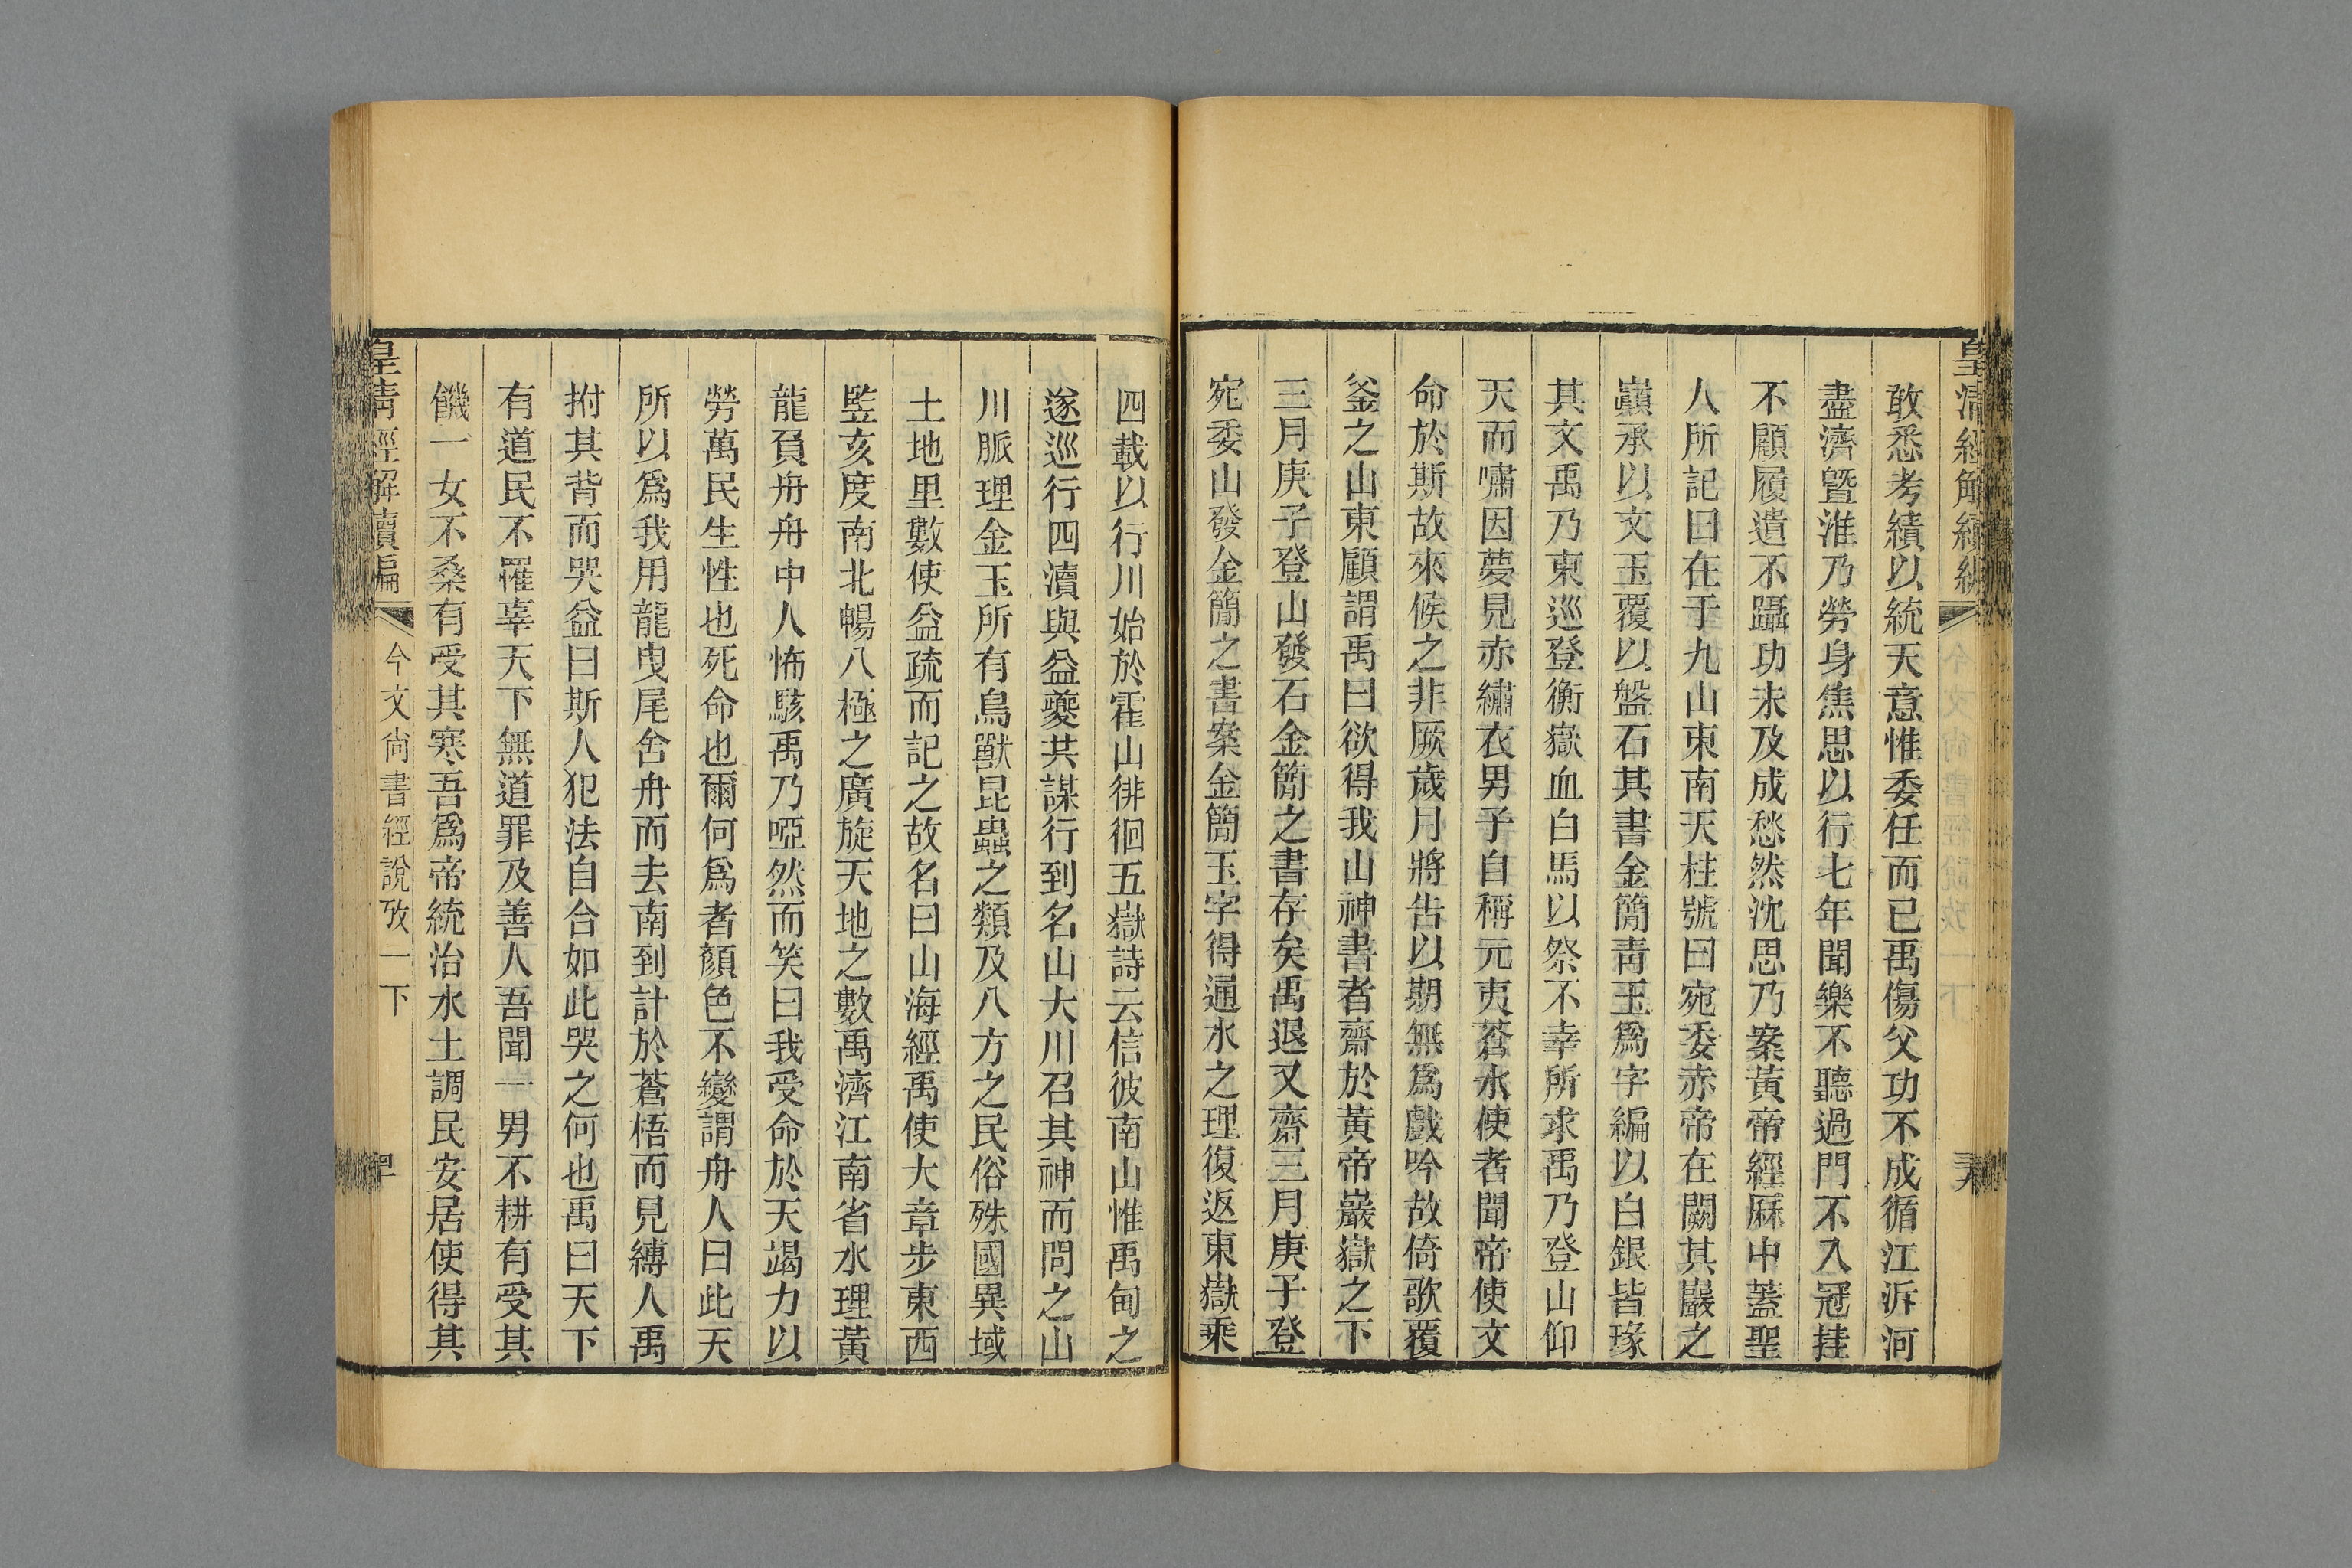 皇清經解續編
敢悉考績以統天意惟委任而已禹傷父功不成循江泝河
盡濟暨淮乃勞身焦思以行七年聞樂不聽過門不入冠挂
不顧履遺不躡功未及成愁然沈思乃案黃帝經厤中蓋聖
人所記曰在于九山東南天柱號曰宛委赤帝在闕其巖之
巔承以文玉覆以盤石其書金簡青玉爲字編以白銀皆瑑
其文禹乃東巡登衡嶽血白馬以祭不幸所求禹乃登山仰
天而嘯因夢見赤繡衣男子自稱元夷蒼水使者聞帝使文
命於斯故來候之非厥歲月將告以期無爲戲吟故倚歌覆
釜之山東顧謂禹曰欲得我山神書者齋於黃帝巖嶽之下
三月庚子登山發石金簡之書存矣禹退又齋三月庚子登
宛委山發金簡之書案金簡玉字得通水之理復返東嶽乘
四載以行川始於霍山徘徊五嶽詩云信彼南山惟禹甸之
遂巡行四瀆與益夔共謀行到名山大川召其神而問之山
川脈理金玉所有鳥獸昆蟲之類及八方之民俗殊國異域
土地里數使益疏而記之故名曰山海經禹使大章步東西
豎亥度南北暢八極之廣旋天地之數禹濟江南省水理黃
龍負舟舟中人怖駭禹乃啞然而笑曰我受命於天竭力以
勞萬民生性也死命也爾何爲者顏色不變謂舟人曰此天
所以爲我用龍曳尾舍舟而去南到計於蒼梧而見縛人禹
拊其背而哭益曰斯人犯法自合如此哭之何也禹曰天下
有道民不罹辜天下無道罪及善人吾聞一男不耕有受其
饑一女不桑有受其寒吾爲帝統治水土調民安居使得其
皇清經解續編 今文尚書經說攷一下